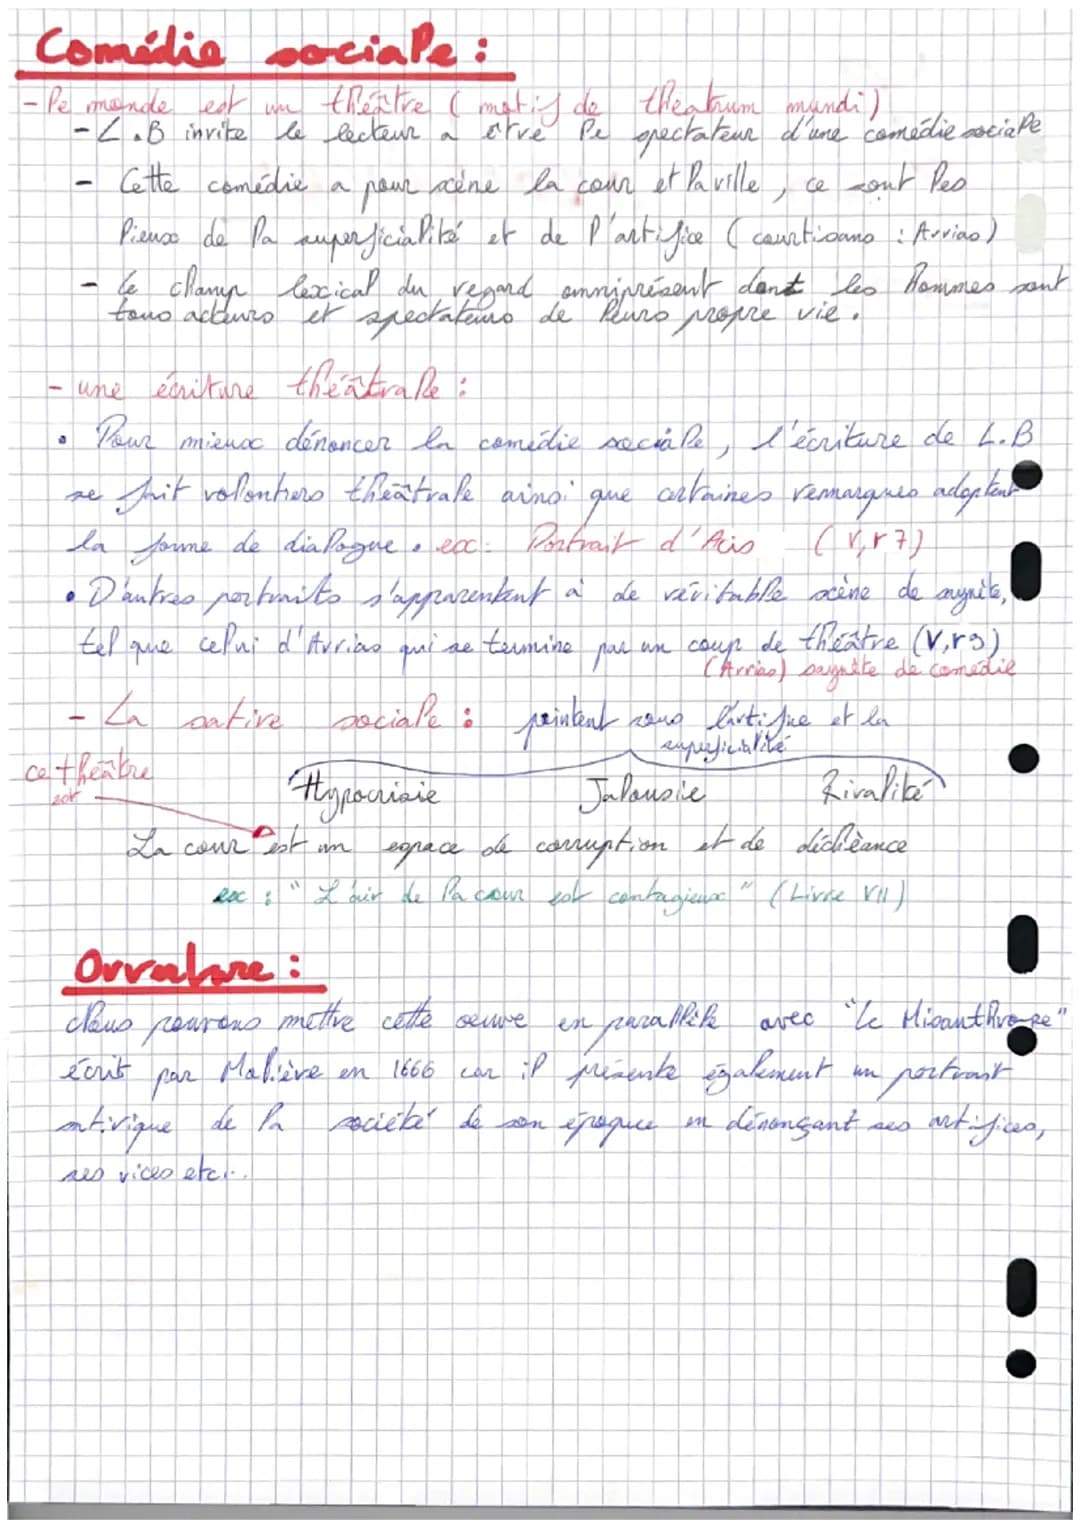 Comédie sociale :
- le monde est un théâtre ( motif de theatrum mundi )
- L.B invite le lecteur a être le spectateur d'une comédie sociale
- Cette comédie a pour scène la cour et la ville, ce sont les
lieux de la superficialité et de l'artifice ( courtisans : Arrias )
- le champ lexical du regard omniprésent dont les hommes sont
tous acteurs et spectateurs de leurs propre vie.
- une écriture théâtrale :
• Pour mieux dénoncer la comédie sociale, l'écriture de L.B
se fait volontiers théâtrale ainsi que certaines remarques adoptent
la forme de dialogue. ex : Portrait d'Acis ( V, r 7 )
• D'autres portraits s'apparentent à de véritable scène de saynète,
tel que celui d'Arrias qui se termine par un coup de théâtre ( V, r 9 )
(Arrias) saynète de comédie
- La satire sociale : pointent sous l'artifice et la
superficialité
ce théâtre
est
Hypocrisie Jalousie Rivalité
La cour est un espace de corruption et de déchéance
ex : " L'air de la cour est contagieux " ( Livre VII )
Ouverture :
Nous pouvons mettre cette oeuvre en parallèle avec "Le Misanthrope"
écrit par Molière en 1666 car il présente également un portrait
satirique de la société de son époque en dénonçant ses artifices,
ses vices etc...